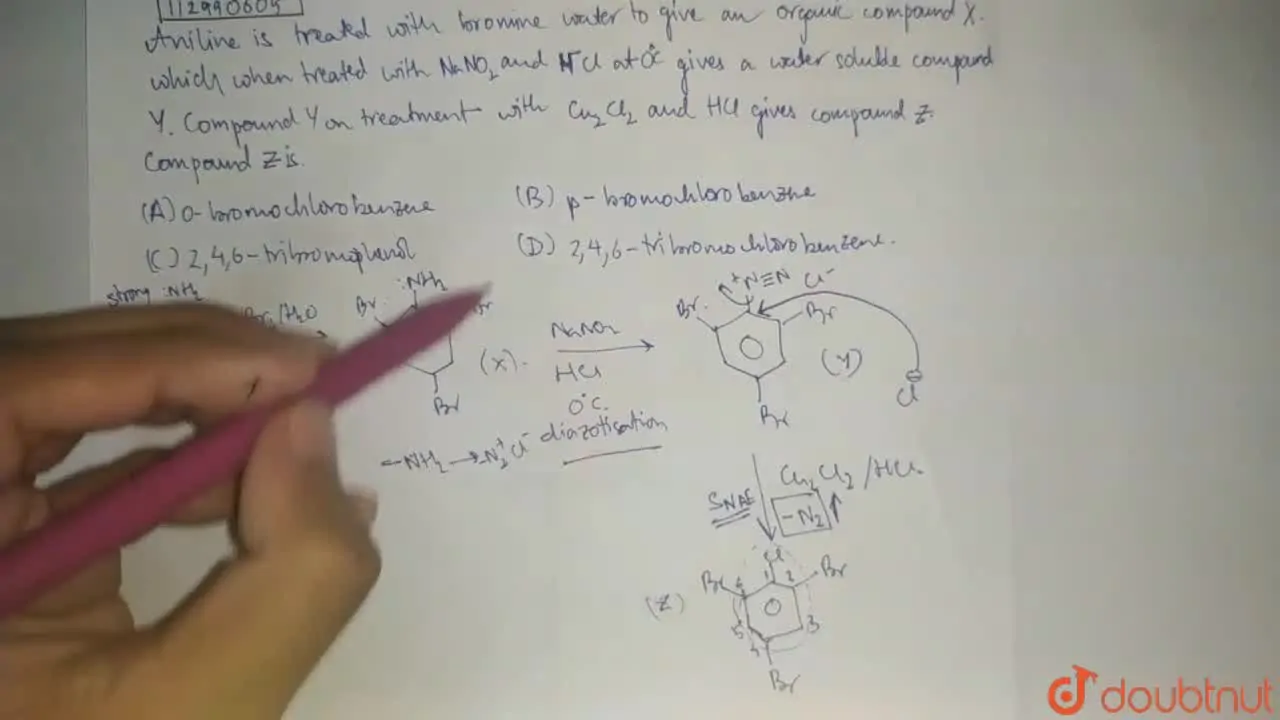 112990605
Aniline is treated with bromine water to give an organic compound X.
which when treated with NaNO2 and HCl at 0°C gives a water soluble compound
Y. Compound Y on treatment with Cu2Cl2 and HCl gives compound Z.
Compound Z is.
(A) o-bromochlorobenzene (B) p-bromochlorobenzene
(C) 2,4,6-tribromophenol (D) 2,4,6-tribromochlorobenzene.
strong :NH2 :NH2 +N≡N Cl-
Br2/H2O Br Br NaNO2 Br Br
(X). HCl (Y)
Br 0°C. Br Cl
-NH2 → -N2+Cl- diazotisation
SNAE Cu2Cl2/HCl
-N2
Cl
(Z) Br 6 1 2 Br
5 3
4
Br
doubtnut